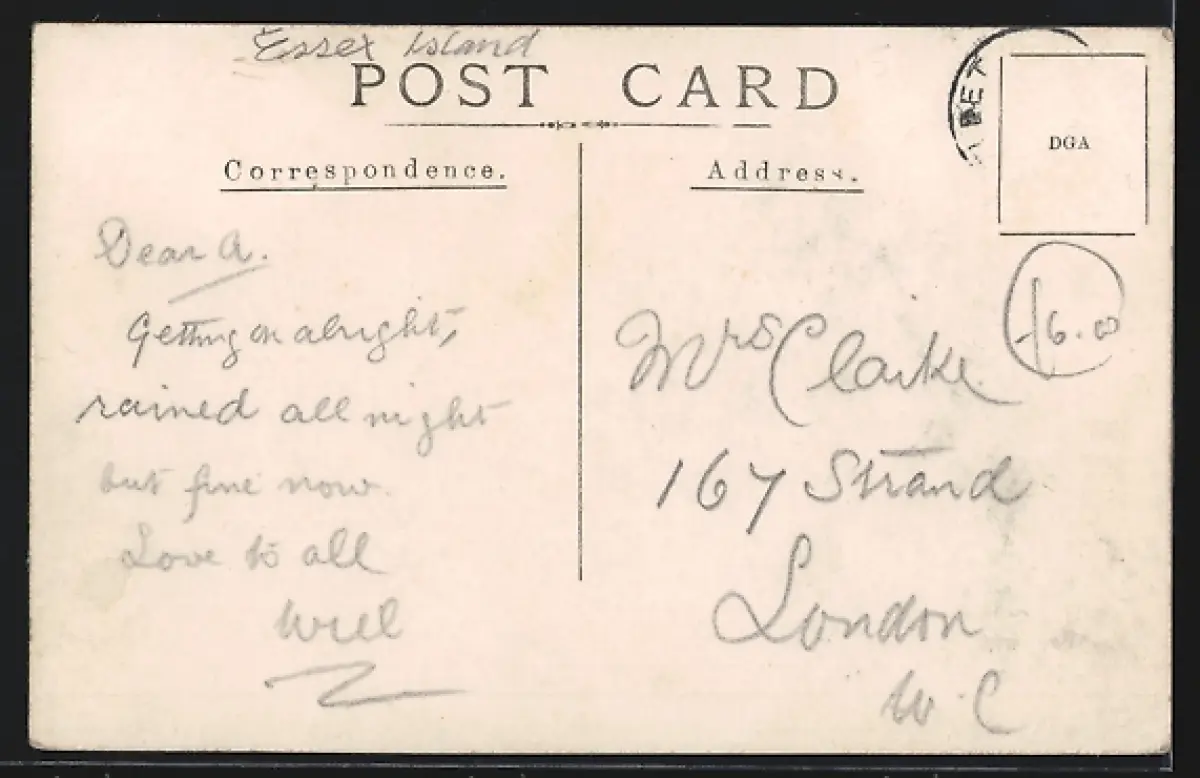 Essex Island
POST CARD
Correspondence.
Address.
DGA
Dear A.
Getting on alright,
rained all night
but fine now.
Love to all
Will
16.00
Mrs Clarke
167 Strand
London
W.C